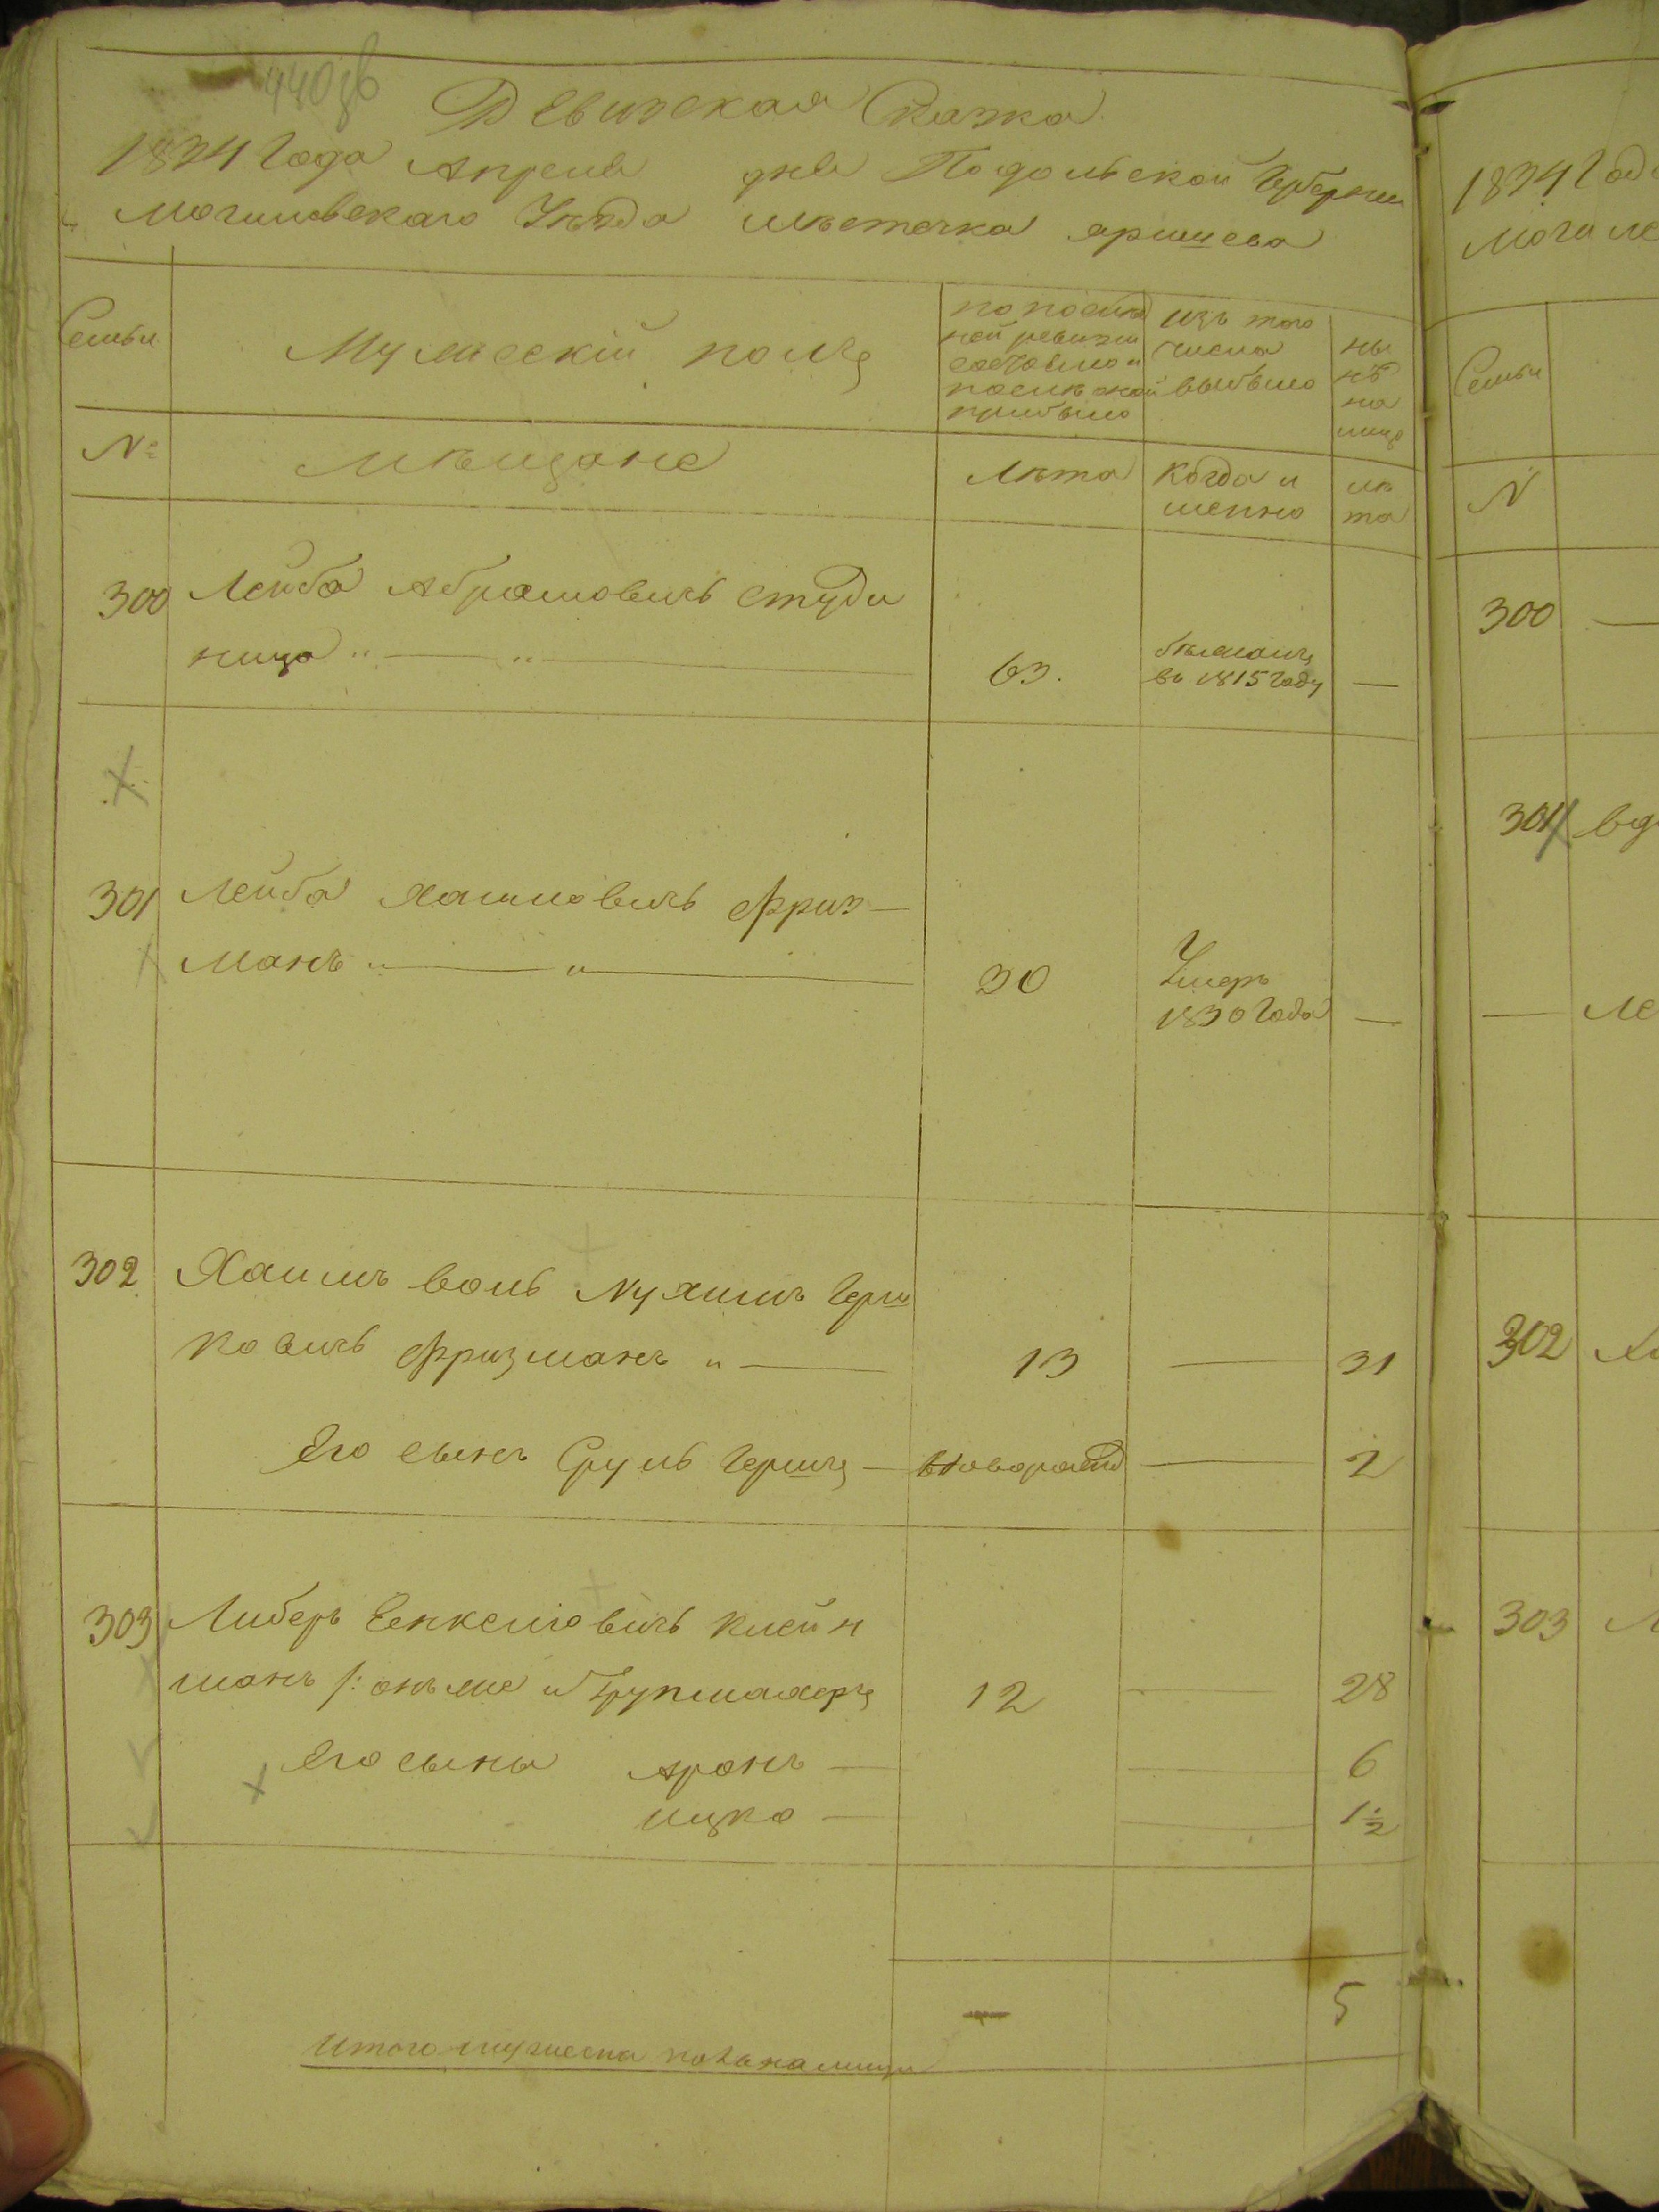 440об
Ревизская Сказка
1834 Года Апреля дня Подольской Губернии
Могилевского Уезда местечка яришева
Семьи
Мужескій полъ
по послед
ней ревизіи
состояло и
после оной
прибыло
изъ того
числа
выбыло
ны
нѣ
на
лицо
№
мѣщане
Лѣта
Когда и
менно
лѣ
та
300 Лейба Абрамовичъ студи
ница
63.
въ 1815 году —
301 Лейба Хаимовичъ Фриз—
манъ
30
Умеръ
1830 Года —
302 Хаимъ воль Нухимъ Герш
ковичъ Фризманъ
13 — 31
Его сынъ Сруль Гершъ — — 2
303 Либеръ Сенкелювичъ клейн
манъ
12 — 28
Его сыны Аронъ — — 6
ицко — — 1½
— 5
Итого мужеска пола на лицо
1834 Год
Могиле
Семьи
N
300 —
301 вд
— Ле
302 Ха
303 Л